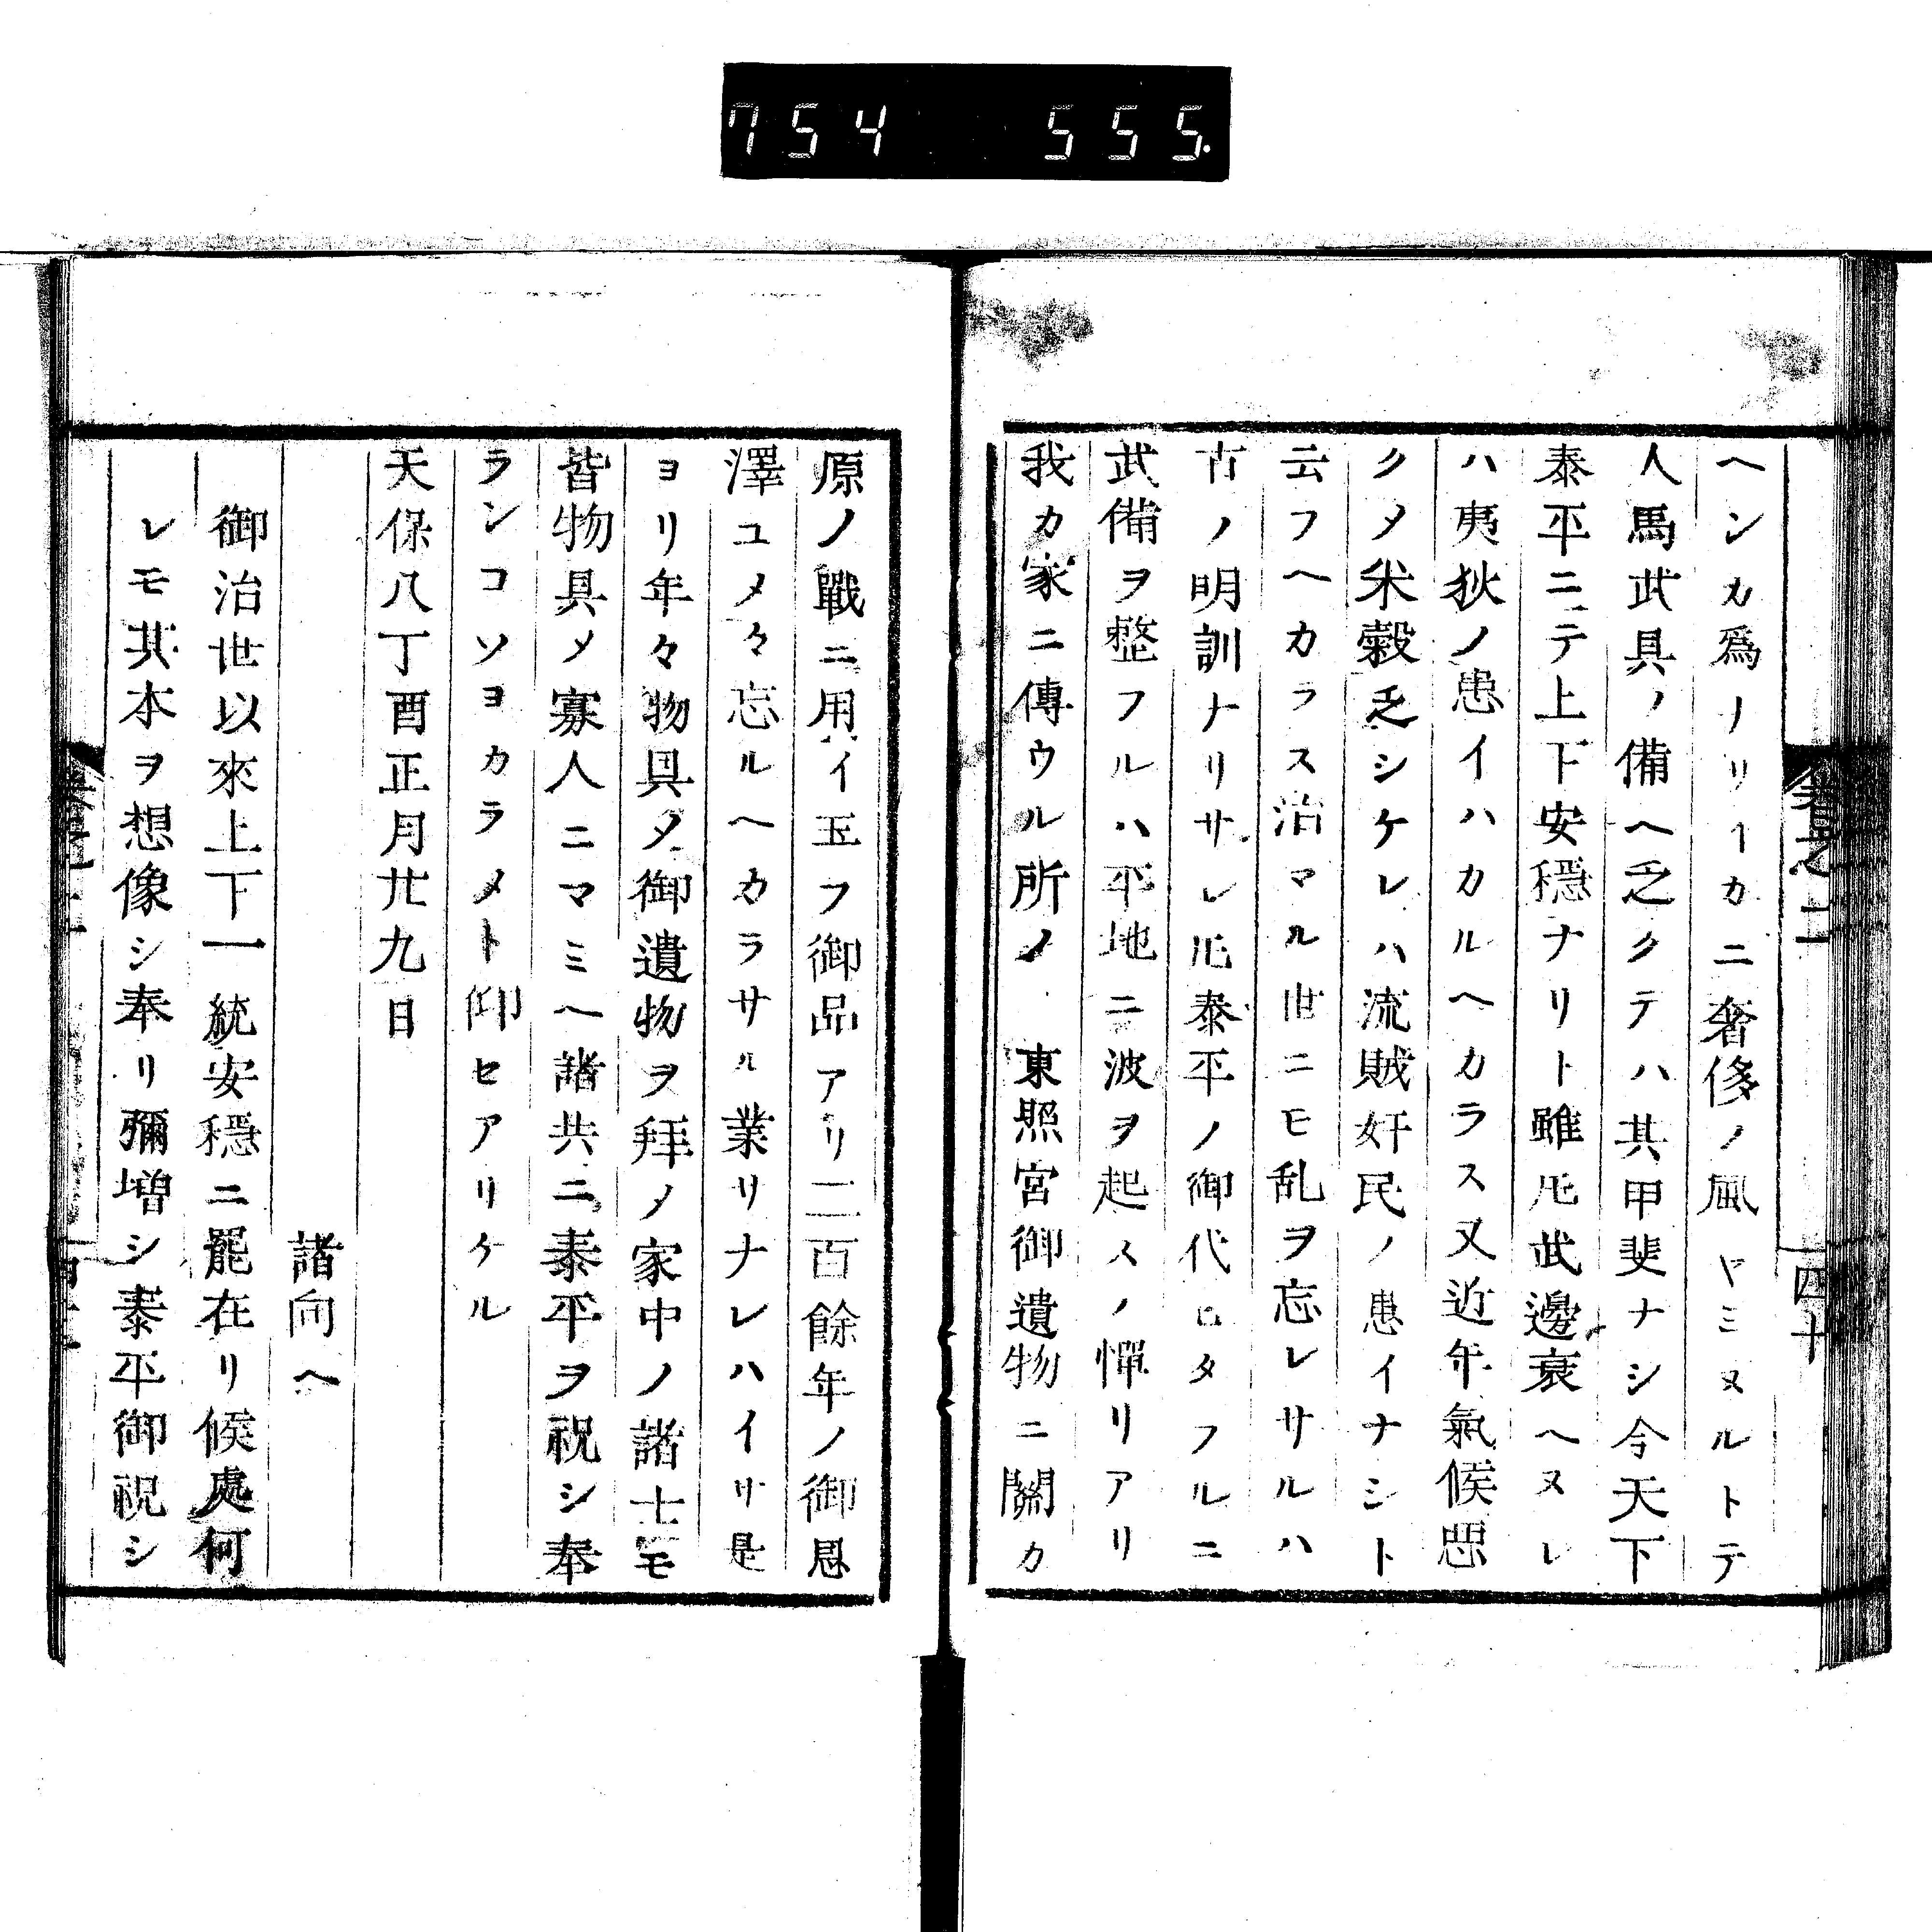 754 555.
ヘンカ爲ノリイカニ奢侈ノ風ヤミヌルトテ
人馬武具ノ備ヘ乏クテハ其甲斐ナシ今天下
泰平ニテ上下安穩ナリト雖𪜈武邊衰ヘヌレ
ハ夷狄ノ患イハカルヘカラス又近年氣候悪
クメ米穀乏シケレハ流賊奸民ノ患イナシト
云フヘカラス治マル世ニモ乱ヲ忘レサルハ
古ノ明訓ナリサレ𪜈泰平ノ御代ヒタフルニ
武備ヲ整フルハ平地ニ波ヲ起スノ憚リアリ
我カ家ニ傳ウル所ノ 東照宮御遺物ニ關カ
原ノ戰ニ用イ玉フ御品アリ二百餘年ノ御恩
澤ユメ々忘ルヘカラサル業リナレハイサ是
ヨリ年々物具メ御遺物ヲ拜ノ家中ノ諸士モ
皆物具メ寡人ニマミヘ諸共ニ泰平ヲ祝シ奉
ランコソヨカラメト仰セアリケル
天保八丁酉正月廿九日
諸向ヘ
御治世以來上下一統安穩ニ罷在リ候處何
レモ其本ヲ想像シ奉リ彌増シ泰平御祝シ
四十